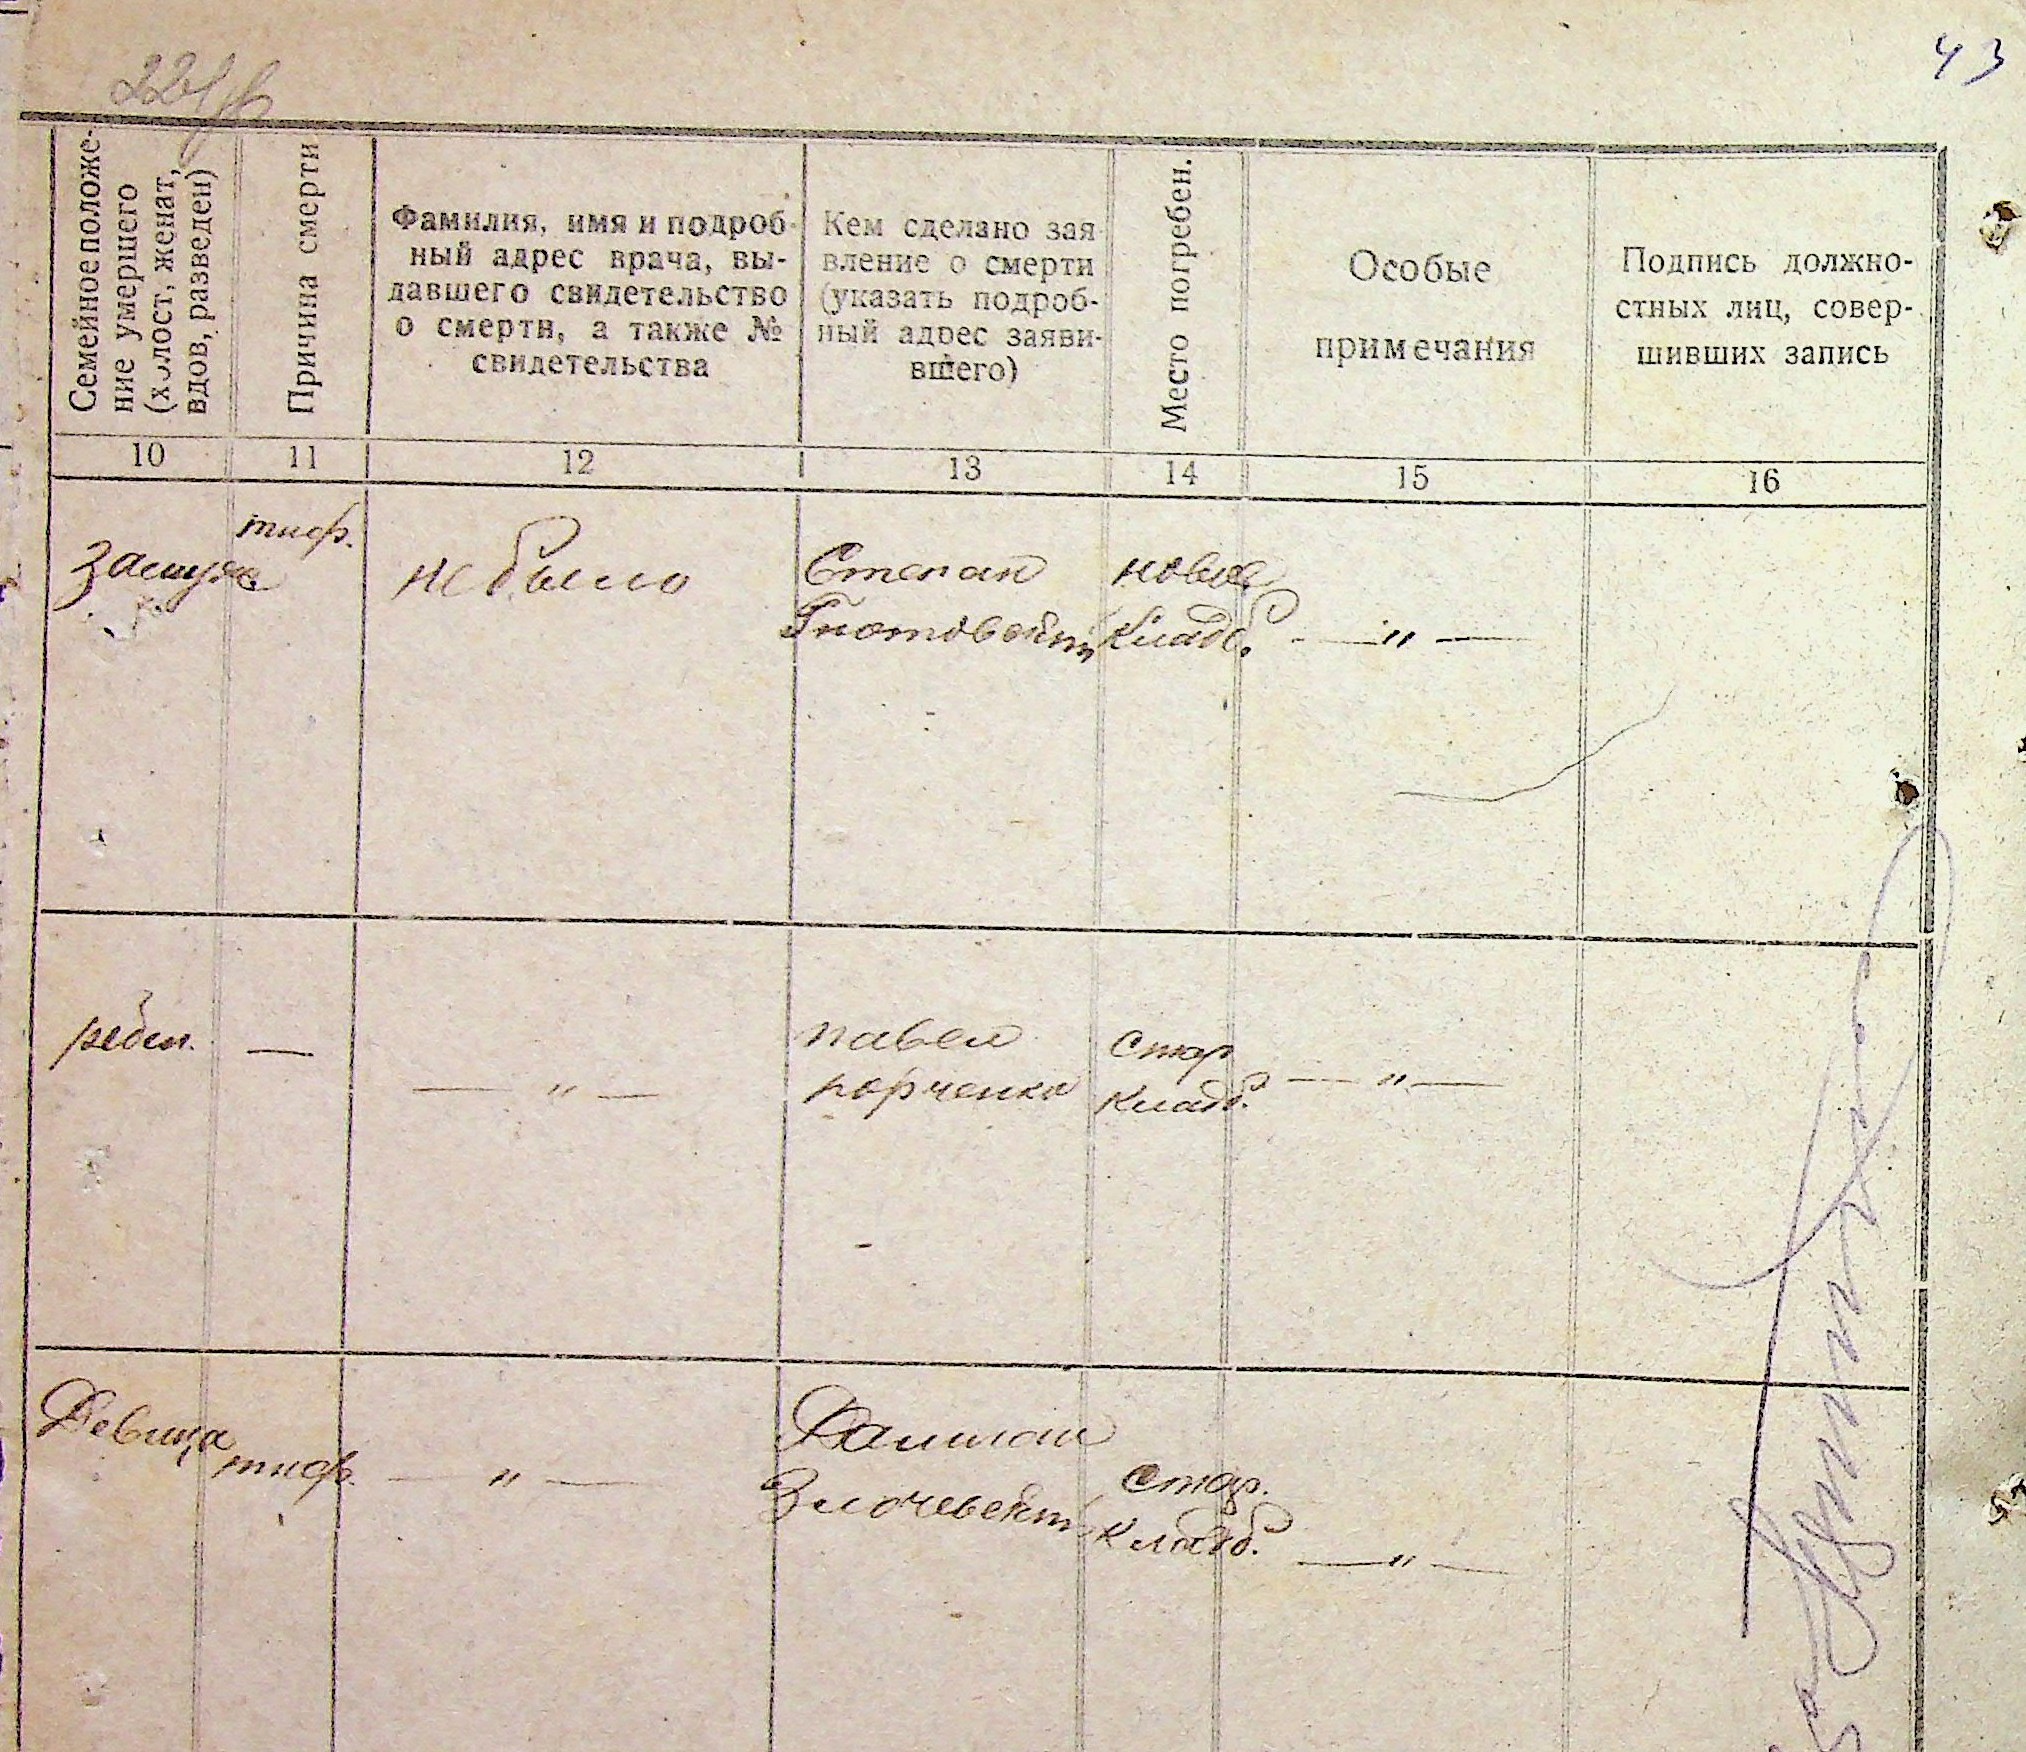 43
Семейное положе-
ние умершего
(холост, женат,
вдов, разведен)
Причина смерти
Фамилия, имя и подроб-
ный адрес врача, вы-
давшего свидетельство
о смерти, а также №
свидетельства
Кем сделано зая
вление о смерти
(указать подроб-
ный адрес заяви-
вшего)
Место погребен.
Особые
примечания
Подпись должно-
стных лиц, совер-
шивших запись
10 11 12 13 14 15 16
тиф.
замуж не было Степан новое
кладб. — " —
ребен. — — " — павел стар
кладб. — " —
Девица тиф. — " —
Злочевский стар.
кладб. — " —